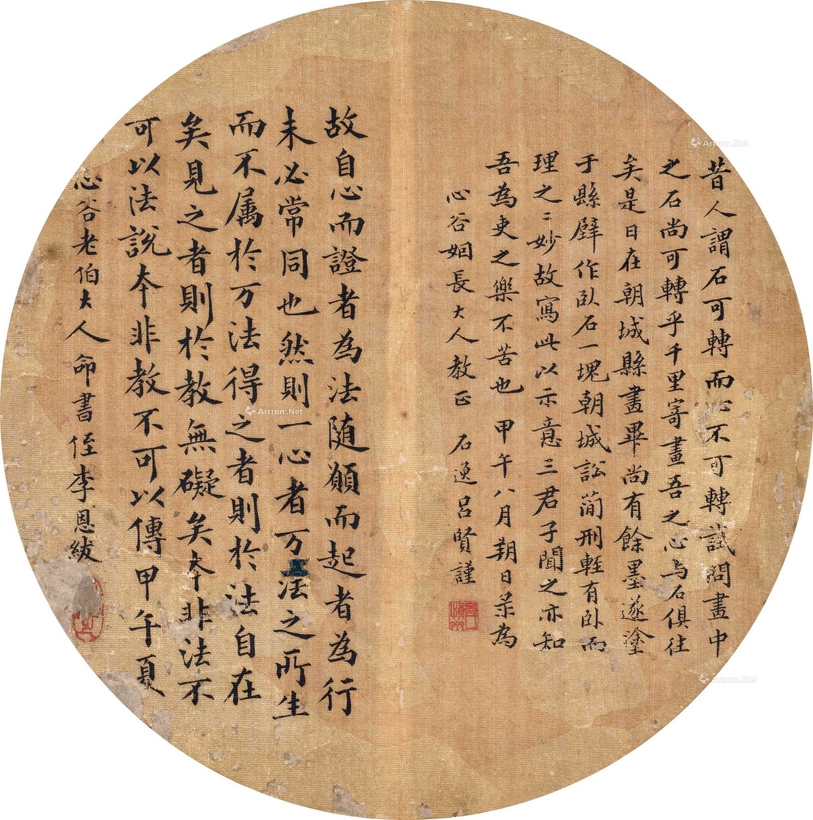 昔人謂石可轉而心不可轉試問畫中
之石尚可轉乎千里寄畫吾之心與石俱往
矣是日在朝城縣畫畢尚有餘墨遂塗
于縣壁作臥石一塊朝城訟簡刑輕有臥而
理之之妙故寫此以示意三君子聞之亦知
吾為吏之樂不苦也 甲午八月朔日 為
心谷姻長大人教正 石逸呂賢謹
故自心而證者為法隨願而起者為行
未必常同也然則一心者万法之所生
而不属於万法得之者則於法自在
矣見之者則於教無礙矣本非法不
可以法說本非教不可以傳甲午夏
心谷老伯大人命書侄李恩紱
Artron.Net
Artron.Net
Artron.Net